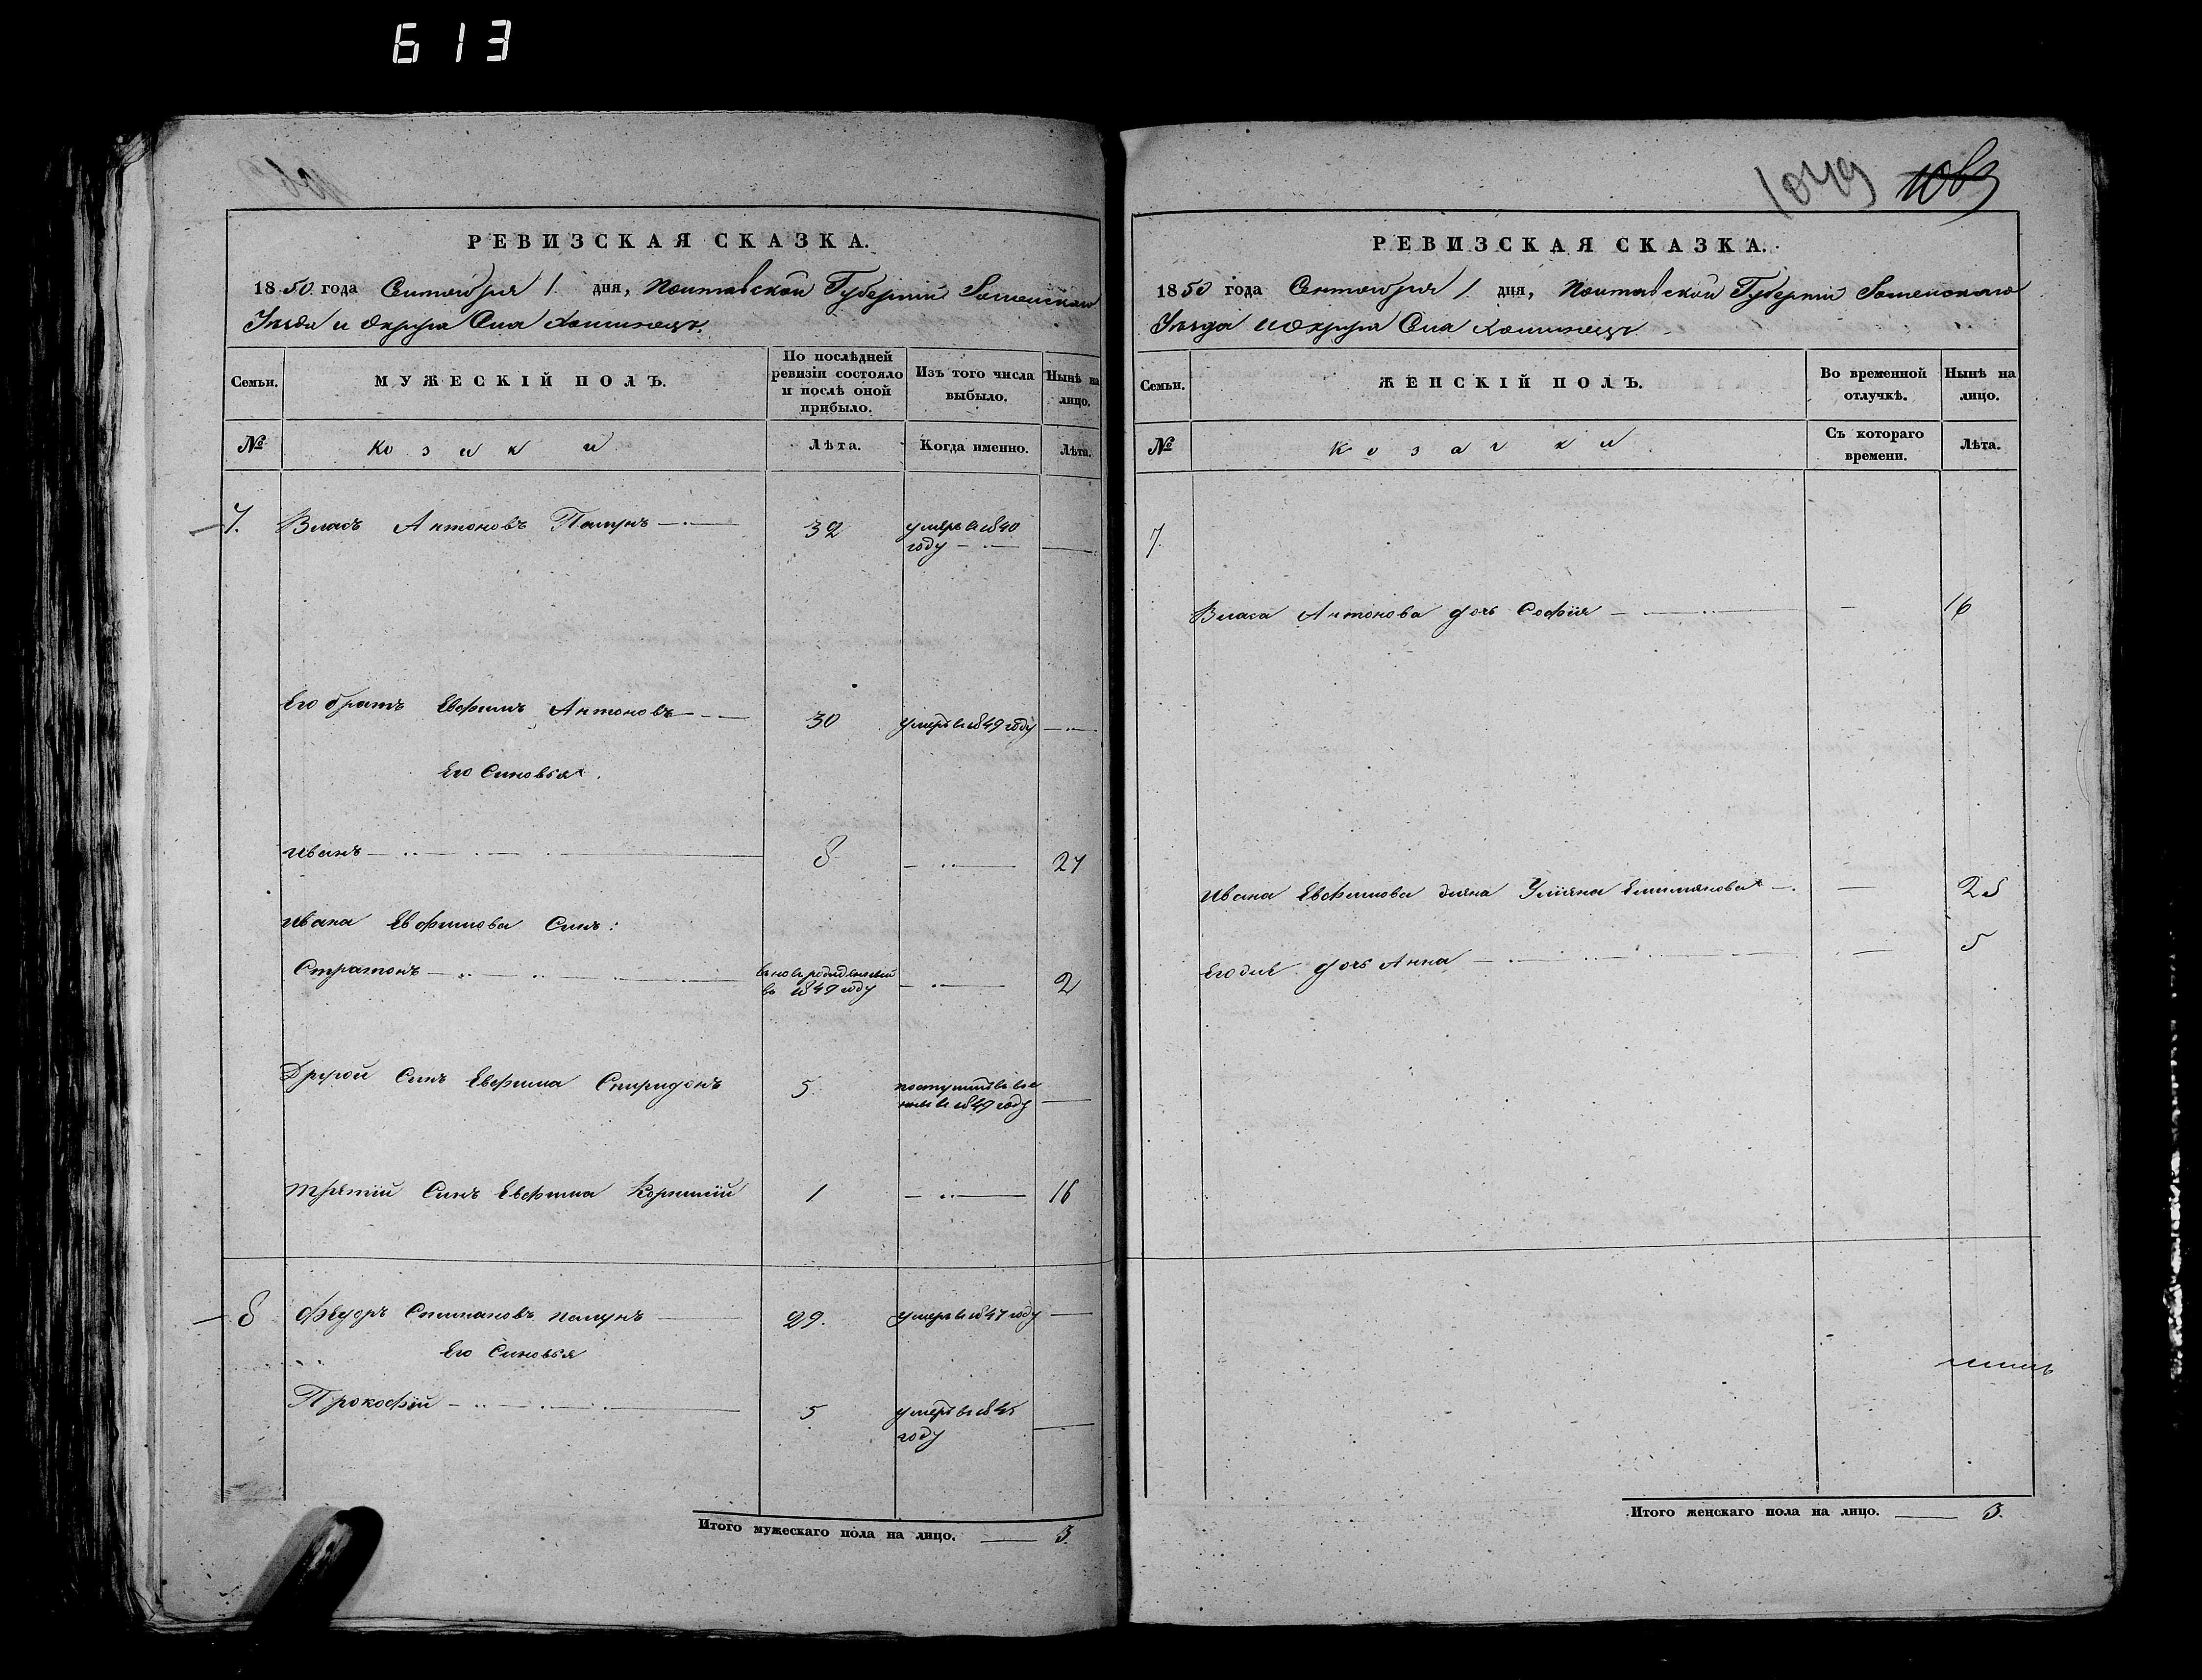 613
1049 1063
РЕВИЗСКАЯ СКАЗКА.
1850 года Сентября 1 дня, Полтавской Губерніи Роменскаго
Уезда и Округа Села Хоминецъ.
Семьи. МУЖЕСКІЙ ПОЛЪ. По послѣдней ревизіи состояло и послѣ оной прибыло. Изъ того числа выбыло. Нынѣ на лицо.
№ Козаки Лѣта. Когда именно. Лѣта.
7. Власъ Антоновъ Папунъ 32 умеръ в 1840 году
Его братъ Евфимъ Антоновъ 30 умеръ в 1849 году
Его Синовья.
Иванъ 8 24
Ивана Евфимова Синъ:
Стратонъ вновь рожденный въ 1849 году 2
Другой Синъ Евфима Спиридонъ 5 в 1849 году
Третій Синъ Евфима Корнилій 1 16
8 Фѣдоръ Степановъ Папунъ 29. умеръ в 1847 году
Его Синовья
Прокофій 5 умеръ в 1845 году
Итого мужескаго пола на лицо. 3.
РЕВИЗСКАЯ СКАЗКА.
1850 года Сентября 1 дня, Полтавской Губерніи Роменскаго
Уезда и Округа Села Хоминецъ
Семьи. ЖЕНСКІЙ ПОЛЪ. Во временной отлучкѣ. Нынѣ на лицо.
№ Козачки Съ котораго времени. Лѣта.
7.
Власа Антонова дочь Софія 16
Ивана Евфимова жена Уліяна Емилянова 25
Его же дочь Анна 5
Итого женскаго пола на лицо. 3.